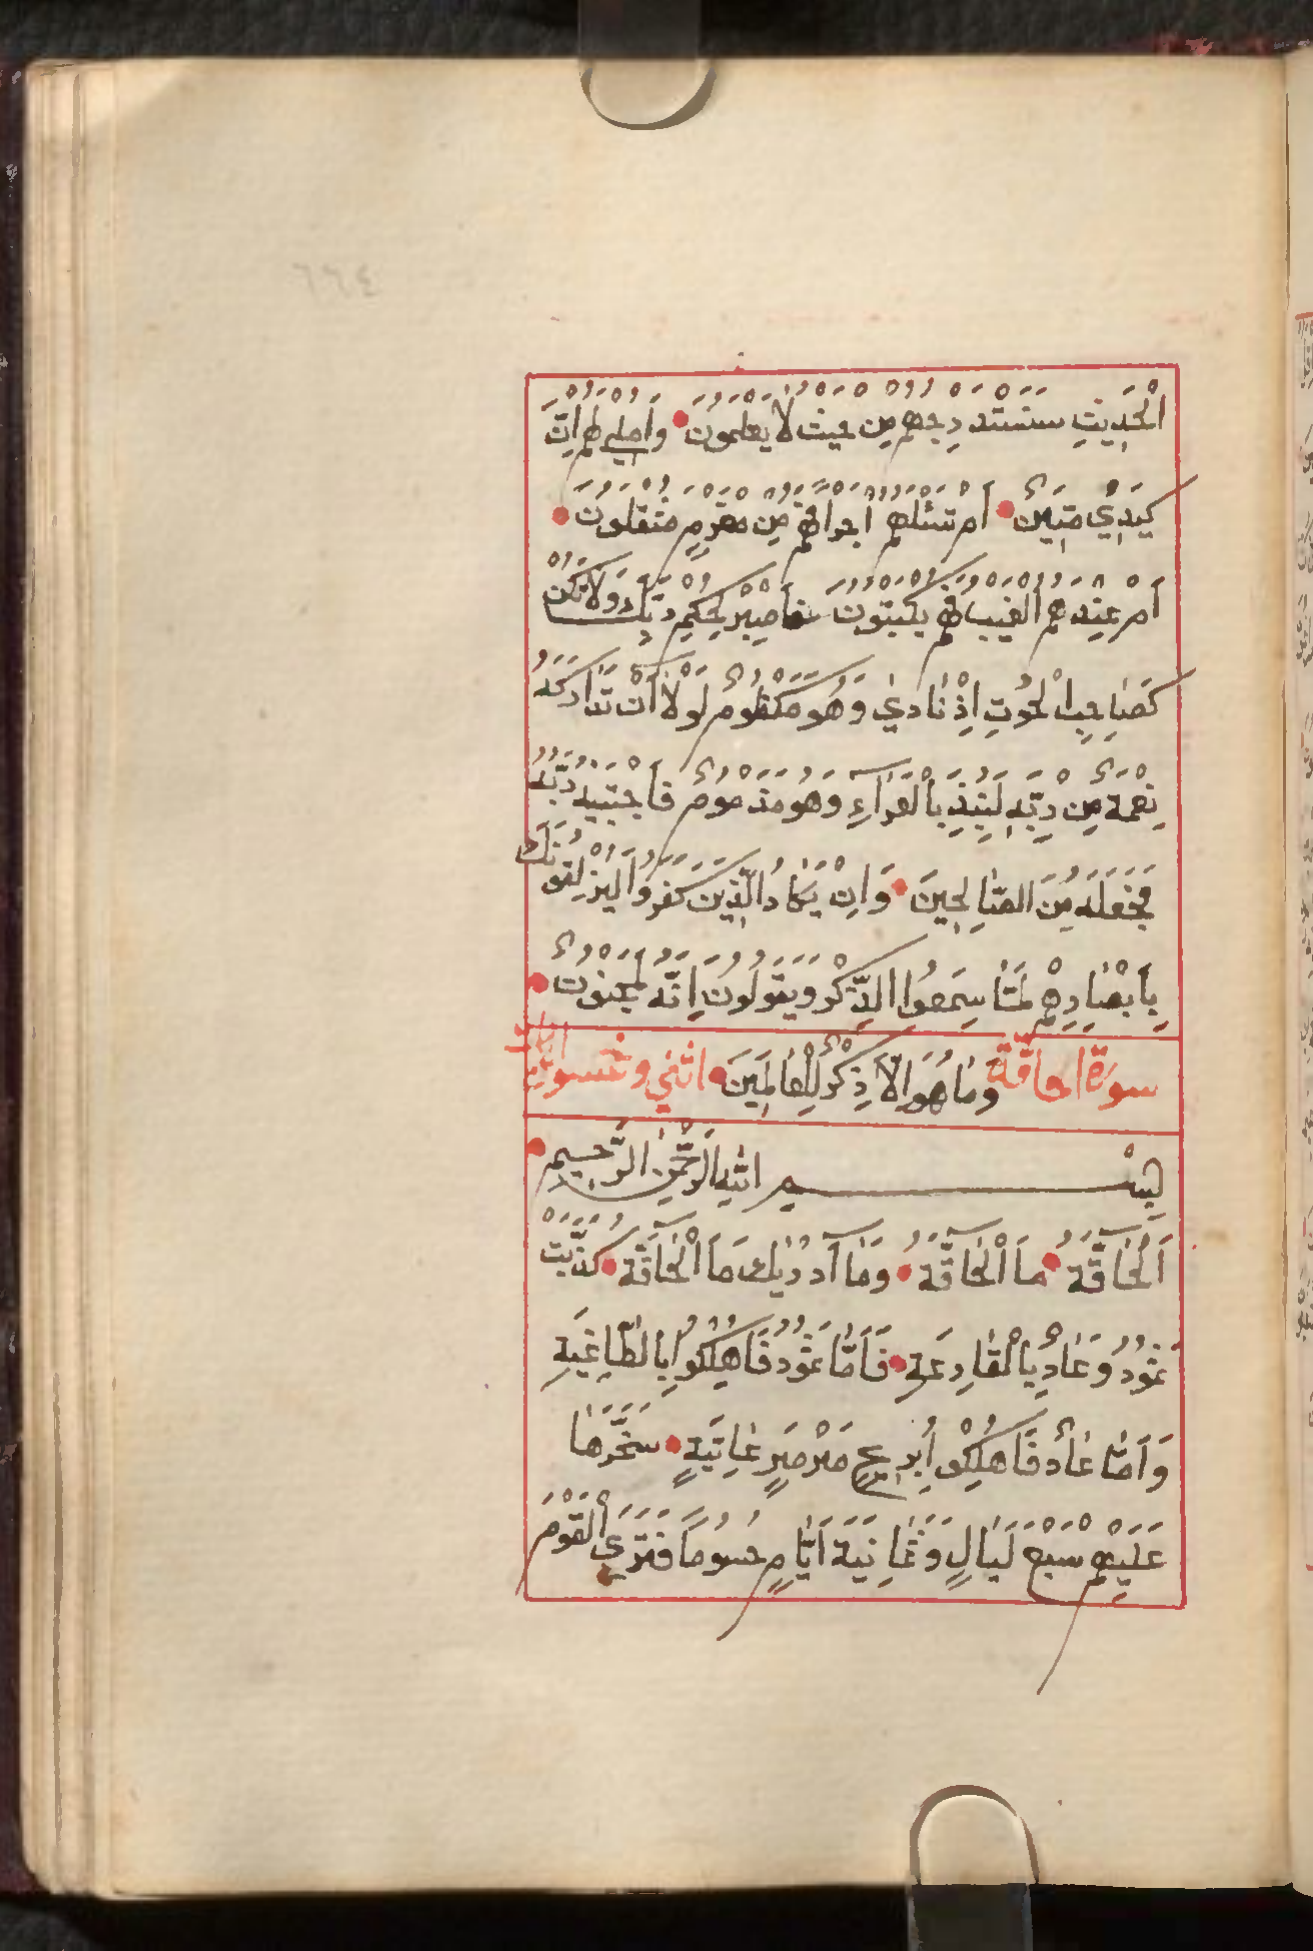 ٦٦٤
الْحَدِيثِ سَنَسْتَدْرِجُهُمْ مِنْ حَيْثُ لَا يَعْلَمُونَ وَاُمْلِي لَهُمْ اِنَّ
كَيْدِي مَتِينٌ اَمْ تَسْئَلُهُمْ اَجْرًا فَهُمْ مِنْ مَغْرَمٍ مُثْقَلُونَ
اَمْ عِنْدَهُمُ الْغَيْبُ فَهُمْ يَكْتُبُونَ فَاصْبِرْ لِحُكْمِ رَبِّكَ وَلَا تَكُنْ
كَصَاحِبِ الْحُوتِ اِذْ نَادٰى وَهُوَ مَكْظُومٌ لَوْلَا اَنْ تَدَارَكَهُ
نِعْمَةٌ مِنْ رَبِّهِ لَنُبِذَ بِالْعَرَاءِ وَهُوَ مَذْمُومٌ فَاجْتَبٰيهُ رَبُّهُ
فَجَعَلَهُ مِنَ الصَّالِحِينَ وَاِنْ يَكَادُ الَّذِينَ كَفَرُوا لَيُزْلِقُونَكَ
بِاَبْصَارِهِمْ لَمَّا سَمِعُوا الذِّكْرَ وَيَقُولُونَ اِنَّهُ لَمَجْنُونٌ
سورة الحاقة وَمَا هُوَ اِلَّا ذِكْرٌ لِلْعَالَمِينَ اثني وخمسون ايات
بِسْمِ اللّٰهِ الرَّحْمٰنِ الرَّحِيمِ
اَلْحَاقَّةُ مَا الْحَاقَّةُ وَمَا اَدْرٰيكَ مَا الْحَاقَّةُ كَذَّبَتْ
ثَمُودُ وَعَادٌ بِالْقَارِعَةِ فَاَمَّا ثَمُودُ فَاُهْلِكُوا بِالطَّاغِيَةِ
وَاَمَّا عَادٌ فَاُهْلِكُوا بِرِيحٍ صَرْصَرٍ عَاتِيَةٍ سَخَّرَهَا
عَلَيْهِمْ سَبْعَ لَيَالٍ وَثَمَانِيَةَ اَيَّامٍ حُسُومًا فَتَرَى الْقَوْمَ